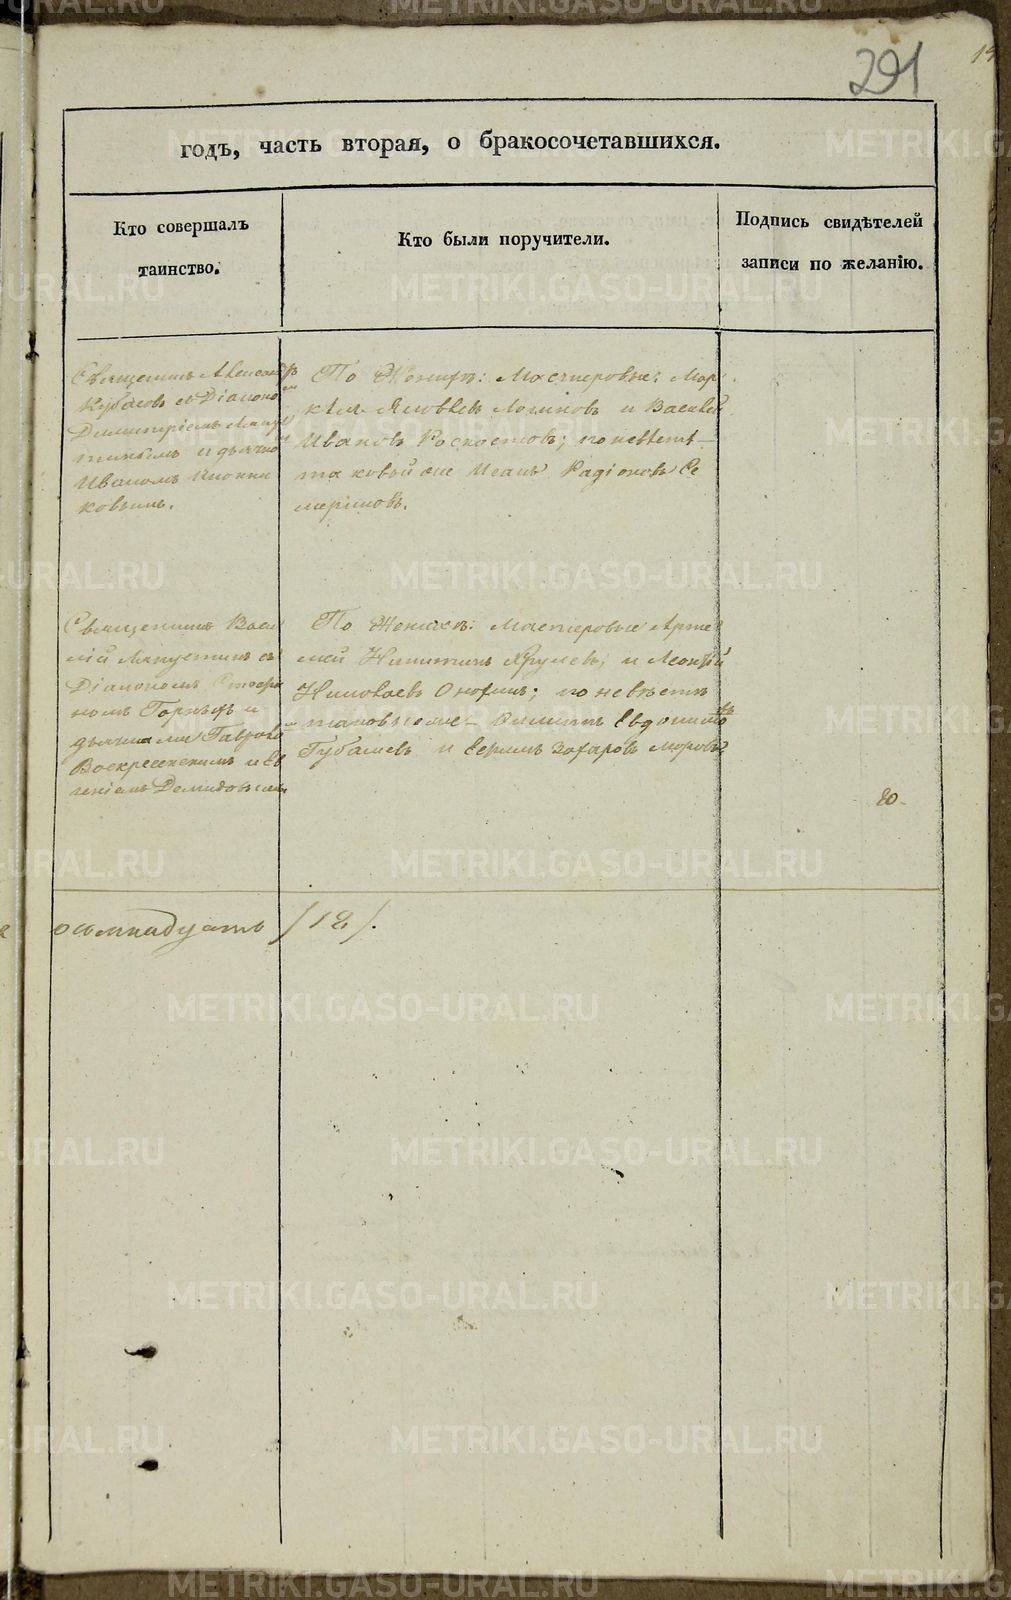 291
годъ, часть вторая, о бракосочетавшихся.
Кто совершалъ
таинство.
Кто были поручители.
Подпись свидѣтелей
записи по желанію.
Священникъ Алексанъ
Кубасовъ съ Діакono
Димитріемъ Ляпу
стинымъ и дьячко
Иваномъ
ковымъ.
По Женихѣ: Мастеровые: Мар
кѣлъ Яковлевъ Логиновъ и Василій
Ивановъ; по невѣстѣ
таковый же Иванъ Радіоновъ Се
меріковъ.
Священникъ Васи
лій Ляпустинъ съ
Діакономъ Стефа
номъ и
дьячками Гаврило
Воскресенскимъ и Ев
геніемъ Демидовскимъ
По Женихѣ: Мастеровые Арте
мей Никитинъ и Леонтій
Николаевъ; по невѣстѣ
таковые же Филипъ Евдокимовъ
Губашевъ и Ефимъ Захаровъ Моровъ
20.
осьмнадцать /18/.
METRIKI.GASO-URAL.RU